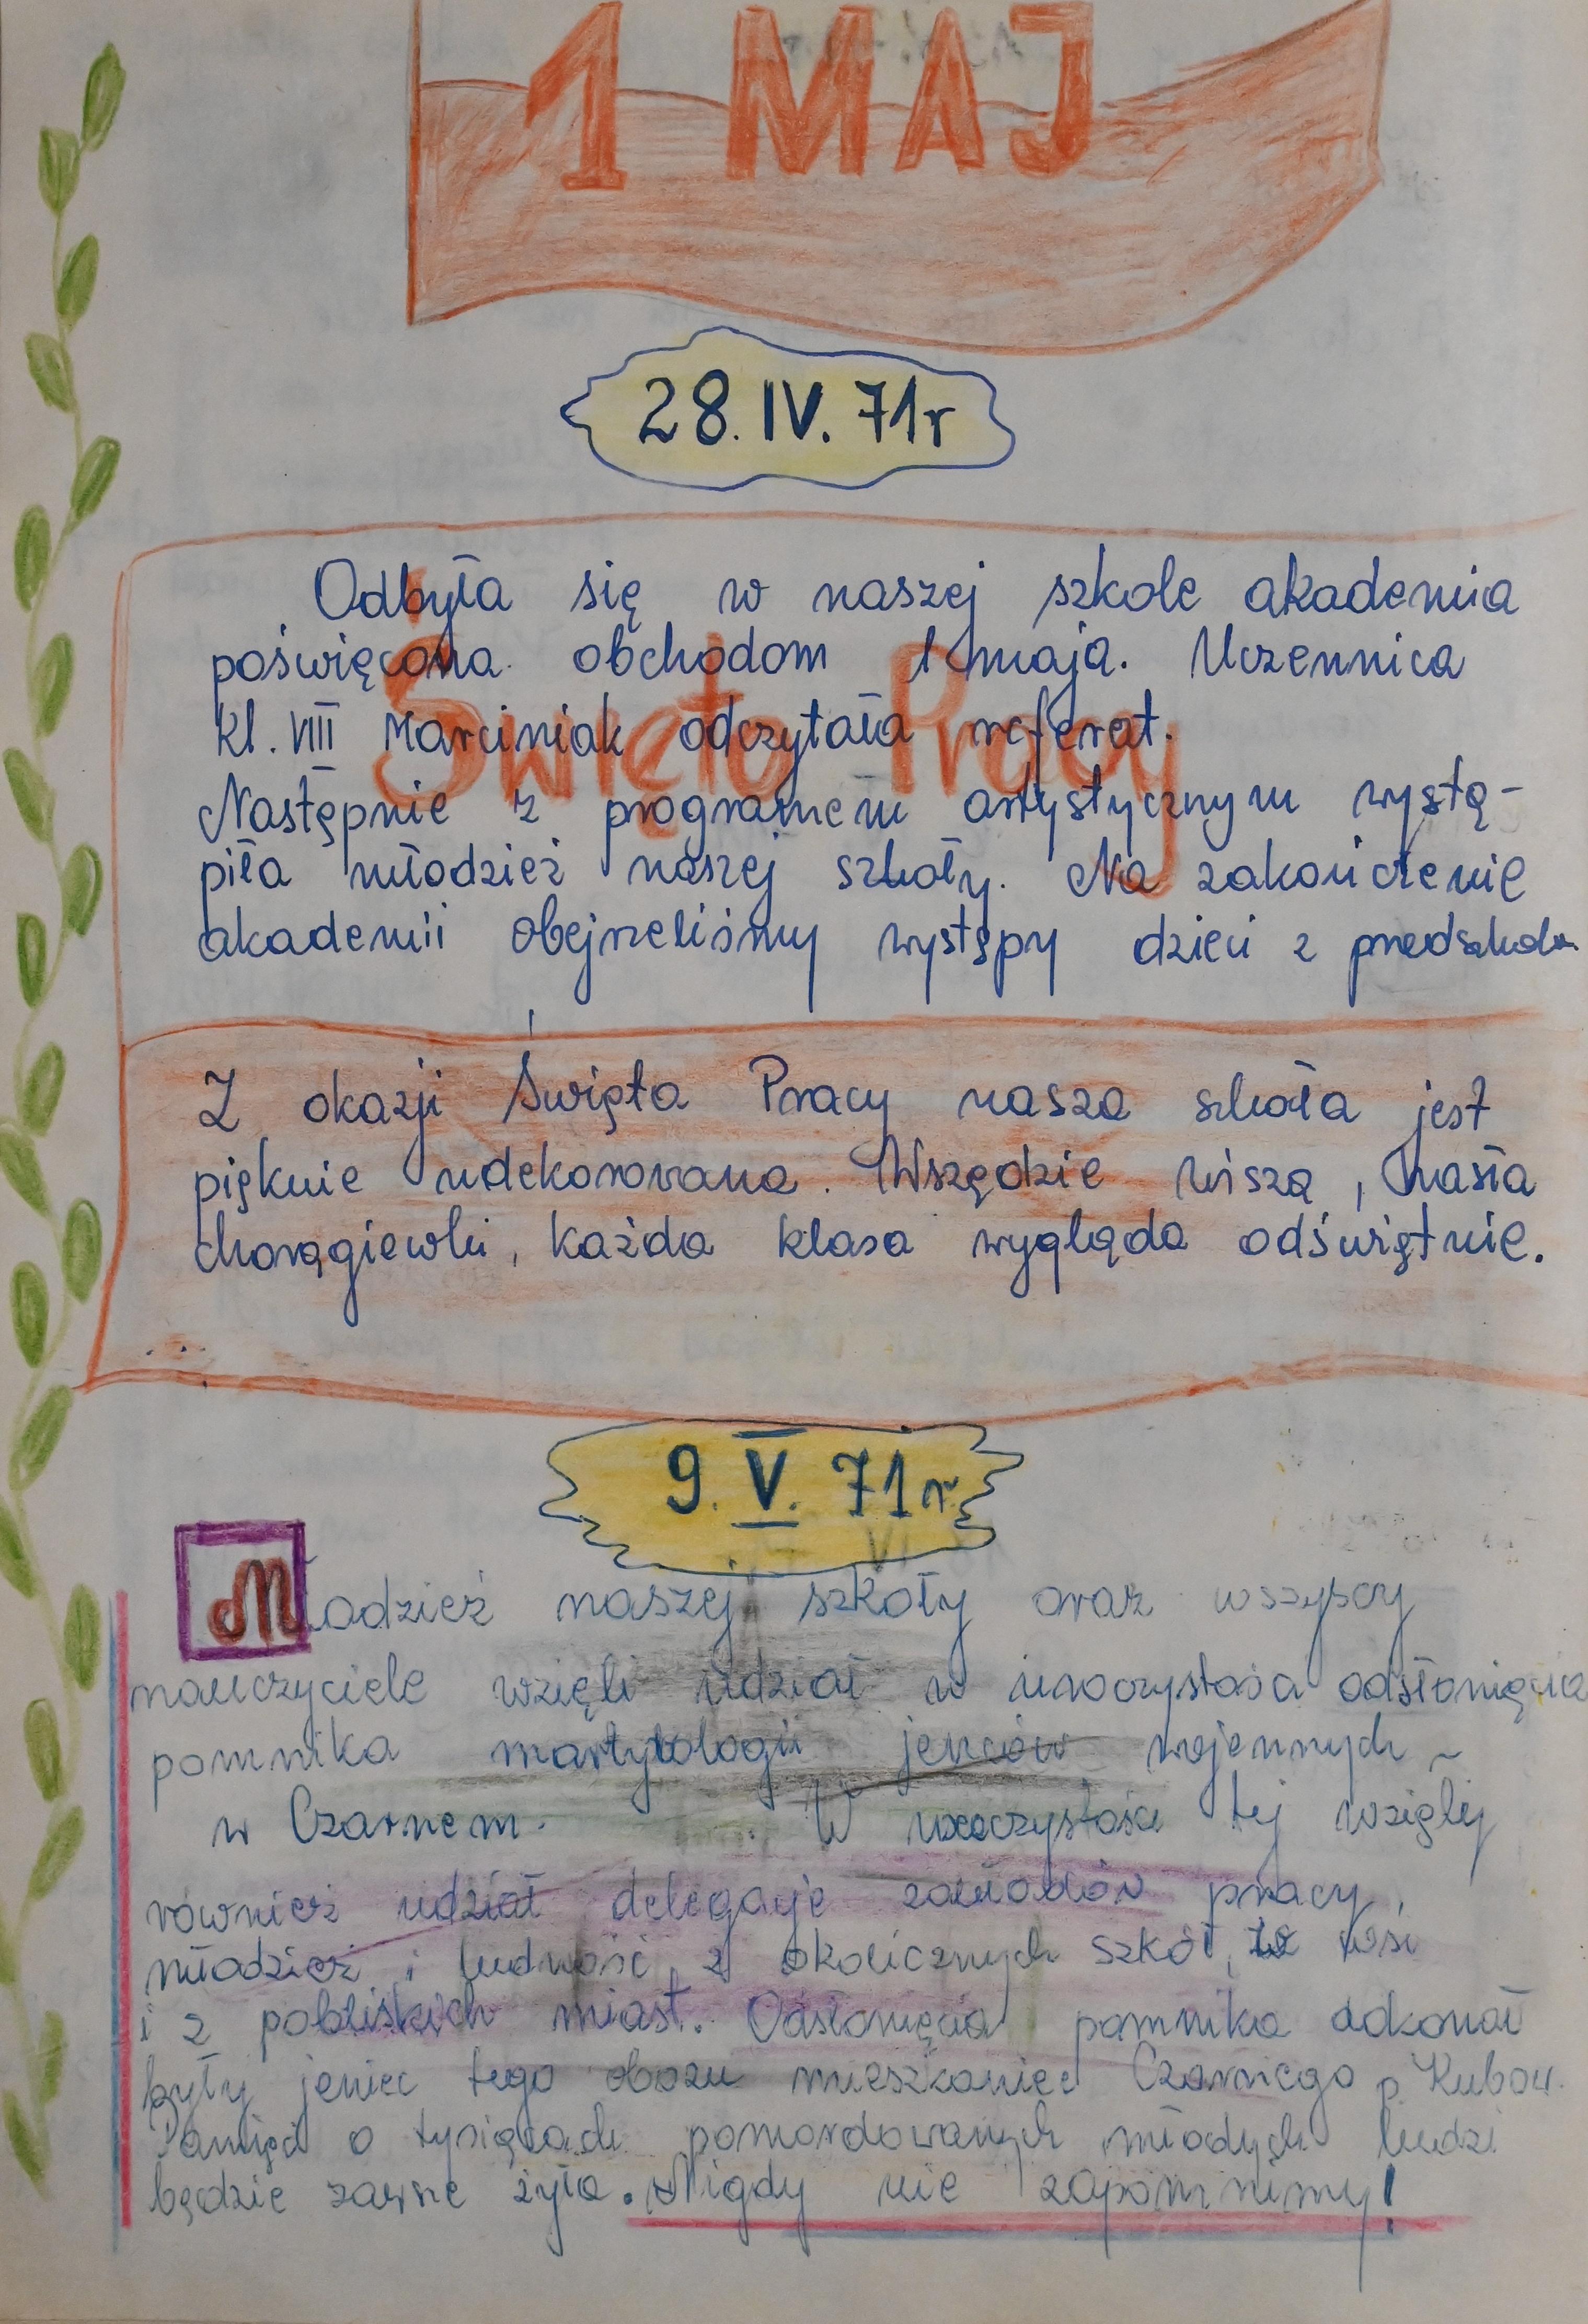 1 MAJ
28. IV. 71r
Odbyła się w naszej szkole akademia
poświęcona obchodom 1 maja. Uczennica
Święto Pracy
kl. VIII Marciniak odczytała referat.
Następnie z programem artystycznym wystą-
piła młodzież naszej szkoły. Na zakończenie
akademii obejrzeliśmy występy dzieci z przedszkola
Z okazji Święta Pracy nasza szkoła jest
pięknie udekorowana. Wszędzie wiszą, hasła
chorągiewki, każda klasa wygląda odświętnie.
9. V. 71r.
Młodzież naszej szkoły oraz wszyscy
nauczyciele wzięli udział w uroczystości odsłonięcia
pomnika martyrologii jeńców wojennych -
w Czarnem. W uroczystości tej wzięły
również udział delegacje zakładów pracy,
młodzież i ludność z okolicznych szkół, wsi
i z pobliskich miast. Odsłonięcia pomnika dokonał
były jeniec tego obozu mieszkaniec Czarnego p. Kubow.
Pamięć o tysiącach pomordowanych młodych ludzi
będzie zawsze żyła. Nigdy nie zapomnimy!